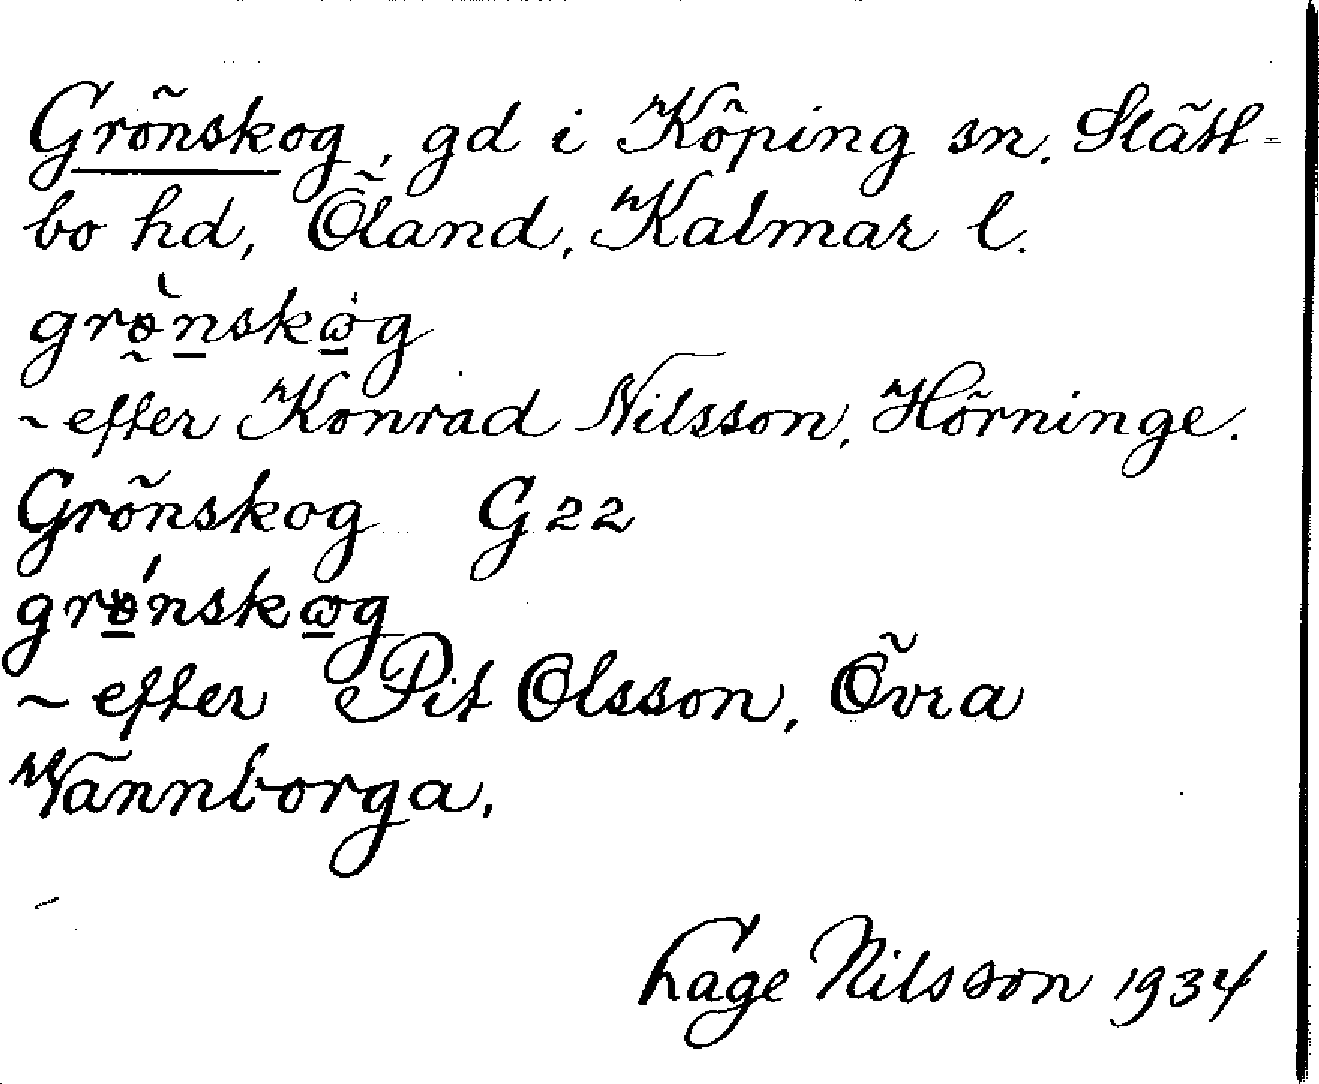 Grönskog, gd i Köping sn. Slätt-
bo hd, Öland, Kalmar l.
grö̀nskωg
~ efter Konrad Nilsson, Hörninge.
Grönskog G 22
grǿnskωg
~ efter Pit Olsson, Övra
Vannborga.
Hage Nilsson 1934